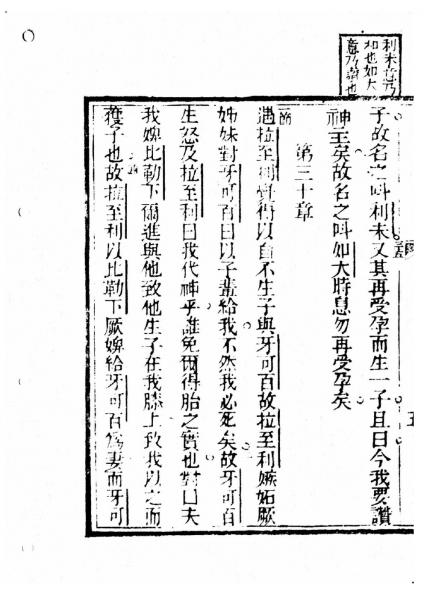 利未意乃
和也如大
意乃讚也
子故名之呌利未又其再受孕而生一子且曰今我要讚
神主矣故名之呌如大時息勿再受孕矣
第三十章
節
遇拉至利覺得以自不生子與牙可百故拉至利嫉妬厥
姊妹對牙可百曰以子輩給我不然我必死矣故牙可百
生怒及拉至利曰我代神乎誰免爾得胎之實也對曰夫
我婢比勒下爾進與他致他生子在我膝上致我以之而
獲子也故拉至利以比勒下厥婢給牙可百為妻而牙可
五